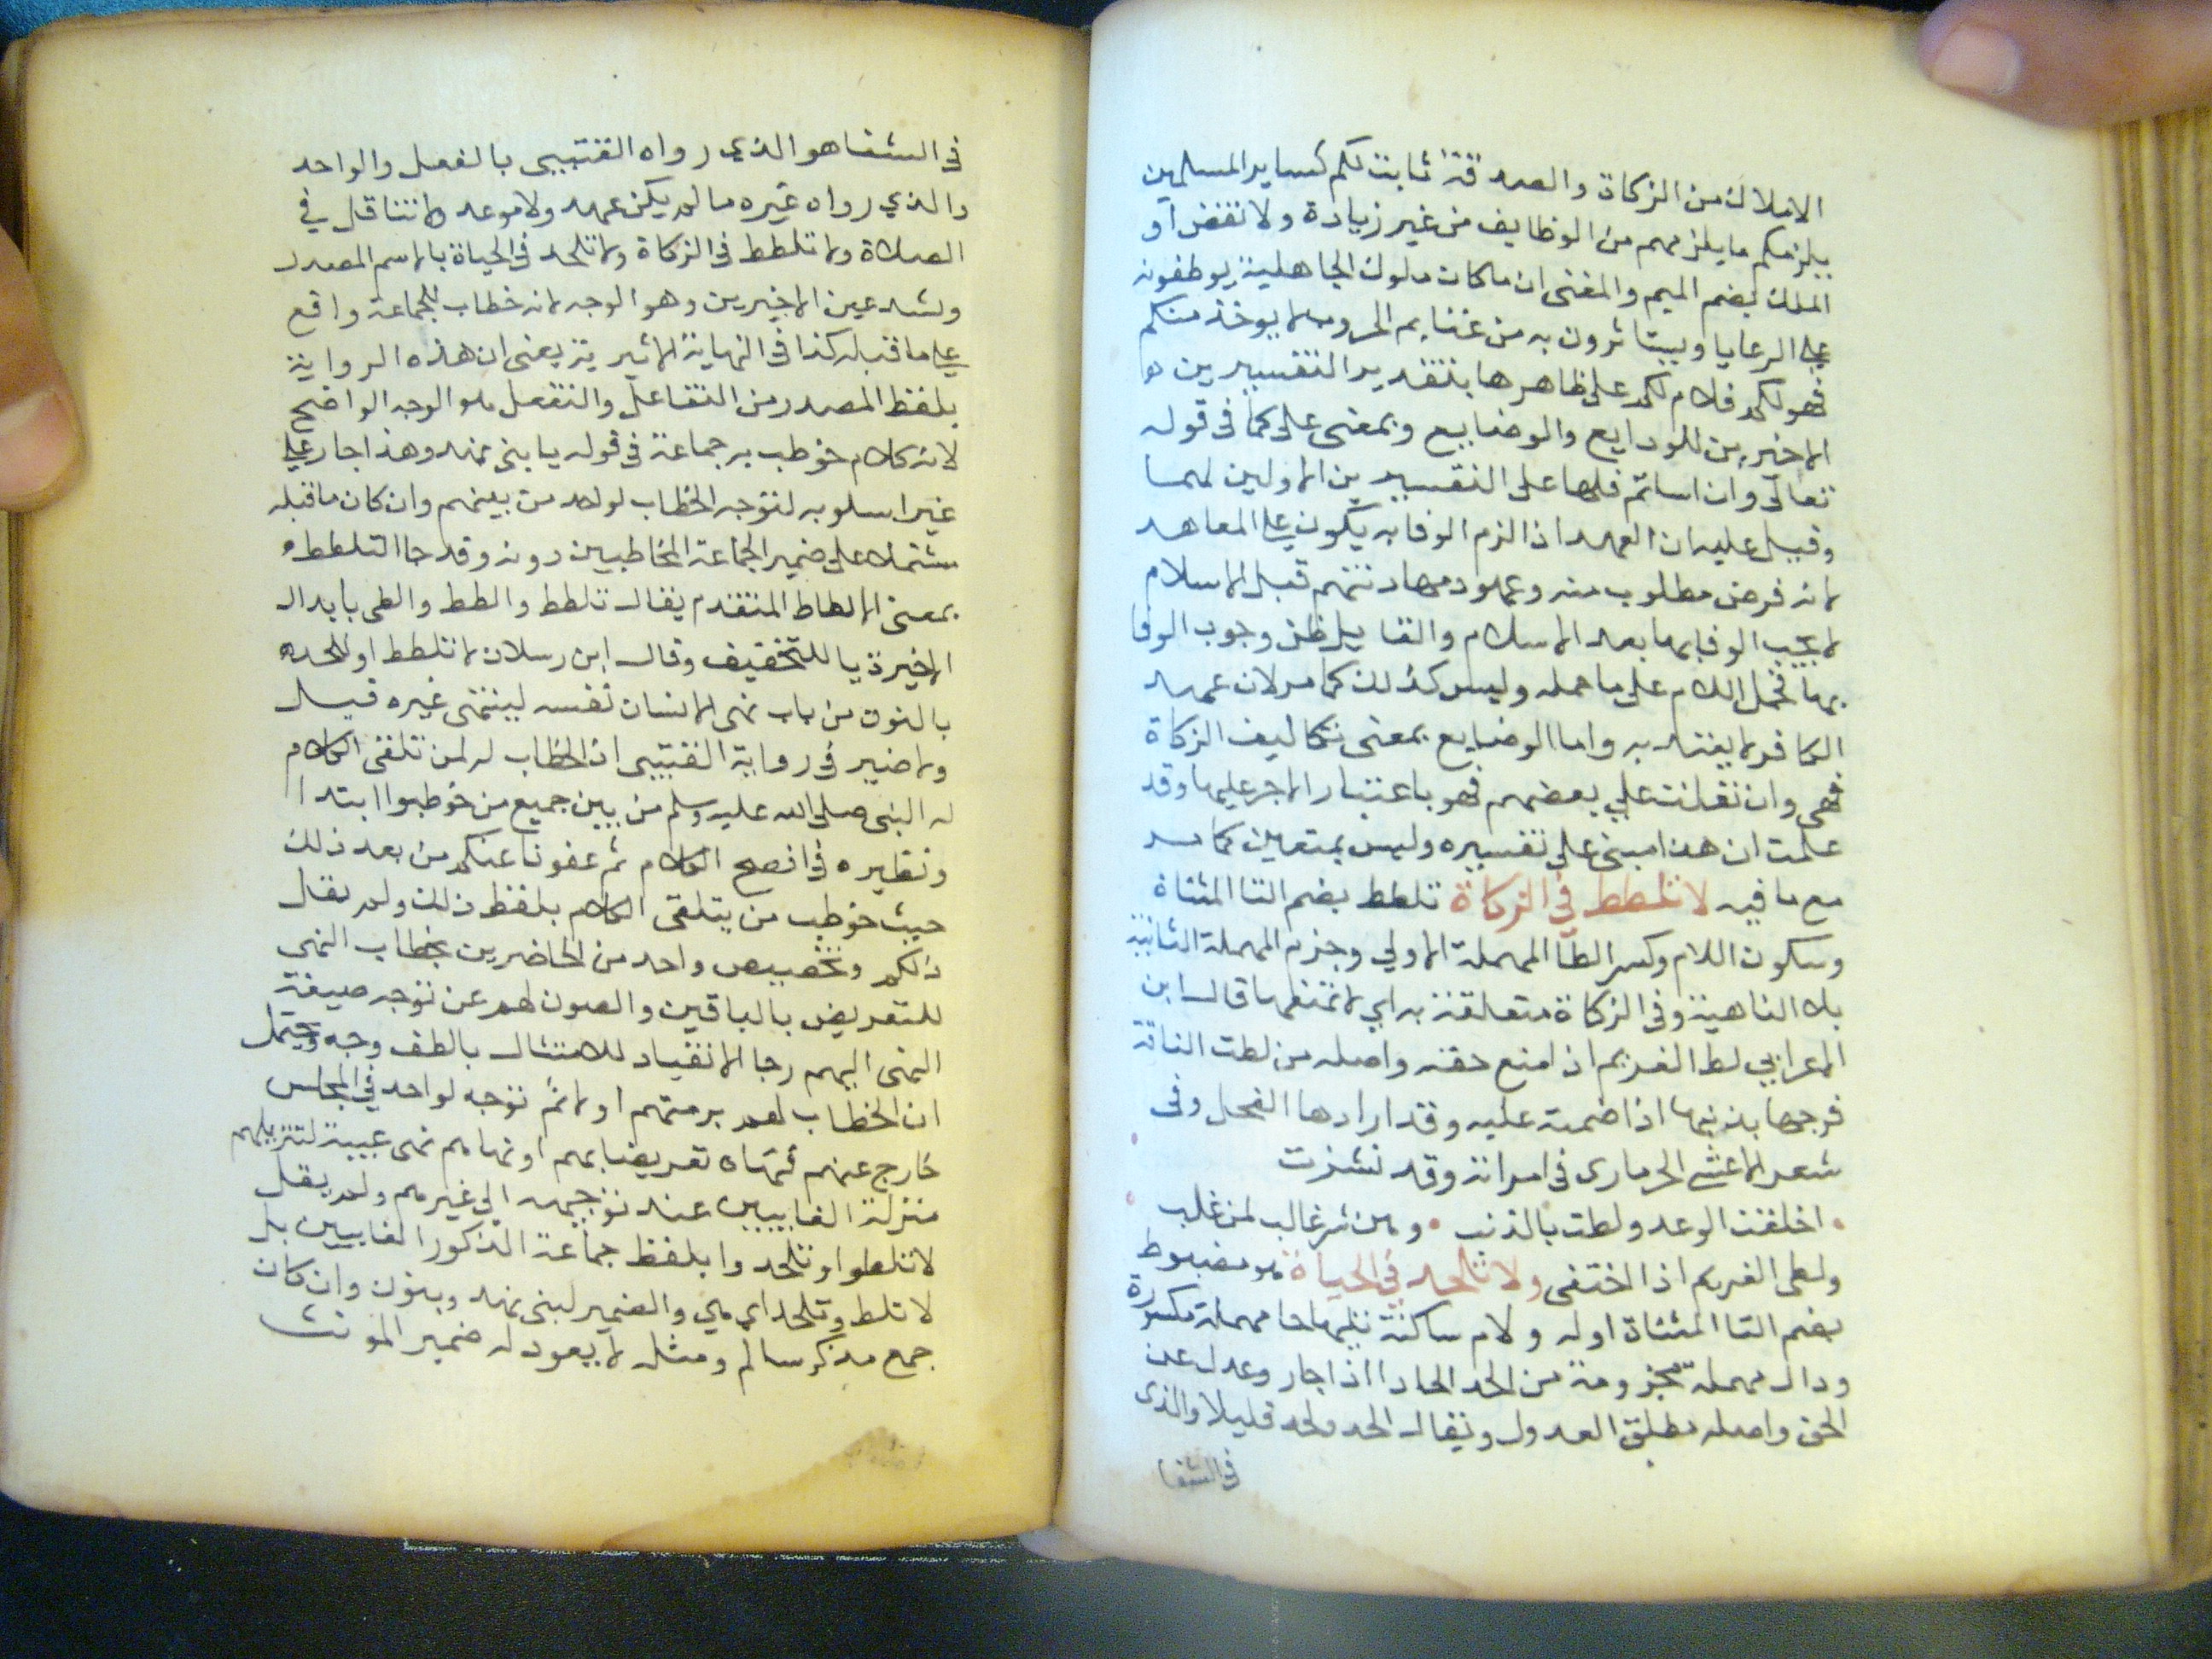 الاملاك من الزكاة والصدقة ثابتة لكم كساير المسلمين
يلزمكم ما يلزمهم من الوظايف من غير زيادة ولا نقض او
الملك بضم الميم والمعنى ان ما كانت ملوك الجاهلية يوظفونه
على الرعايا ويستاثرون به من غنايم الحروب لا يوخذ منكم
فهو لكم فلام لكم على ظاهرها بتقدير التفسيرين
الاخيرين للودايع والوضايع وبمعنى على كما في قوله
تعالى وان اساتم فلها على التفسيرين الاولين لهما
وقيل عليه ان العهد اذا لزم الوفا به يكون على المعاهد
لانه فرض مطلوب منه وعهود مهادنتهم قبل الاسلام
لا يجب الوفا بها بعد الاسلام والقايل ظن وجوب الوفا
بها فحمل اللام على ما حمله وليس كذلك كما مر لان عهد
الكافر لا يعتد به واما الوضايع بمعنى تكاليف الزكاة
فهي وان ثقلت على بعضهم فهو باعتبار الاجر عليها وقد
علمت ان هذا مبنى على تفسيره وليس بمتعين كما مر
مع ما فيه لا تلطط في الزكاة تلطط بضم التا المثناة
وسكون اللام وكسر الطا المهملة الاولي وجزم المهملة الثانية
بلا الناهية وفى الزكاة متعلقة به اي لا تمنعها قال ابن
الاعرابي لط الغريم اذا منع حقه واصله من لطت الناقة
فرجها بذنبها اذا ضمته عليه وقد ارادها الفحل وفى
شعر الاعشى الحرمازى في امراته وقد نشزت
اخلفت الوعد ولطت بالذنب • وهن شر غالب لمن غلب
ولطى الغريم اذا اختفى ولا تلحد في الحياة هو مضبوط
بضم التا المثناة اوله ولام ساكنة تليها حا مهملة مكسورة
ودال مهملة مجزومة من الحد الحادا اذا جار وعدل عن
الحق واصله مطلق العدول ويقال الحد ولحد قليلا والذى
في الشفا
في الشفا هو الذي رواه القتيبى بالفعل والواحد
والذي رواه غيره ما لم يكن عهد ولا موعد ولا تثاقل في
الصلاة ولا تلطط في الزكاة ولا تلحد في الحياة بالاسم المصدر
وشد عين الاخيرين وهو الوجه لانه خطاب للجماعة واقع
على ما قبله كذا في النهاية الاثيرية يعنى ان هذه الرواية
بلفظ المصدر من التفاعل والتفعل هو الوجه الواضح
لانه كلام خوطب به جماعة في قوله يا بنى نهد وهذا جار على
غير اسلوبه لتوجه الخطاب لواحد من بينهم وان كان ما قبله
مشتملا على ضمير الجماعة المخاطبين دونه وقد جا التلطط
بمعنى الالطاط المتقدم يقال تلطط والطط والطى بابدال
الاخيرة يا للتخفيف وقال ابن رسلان لا تلطط او نلحد
بالنون من باب نهى الانسان نفسه لينتهى غيره قيل
ولا ضير في رواية القتيبى اذ الخطاب له لمن تلقى الكلام
له النبى صلى الله عليه وسلم من بين جميع من خوطبوا ابتدا
ونظيره في افصح الكلام ثم عفونا عنكم من بعد ذلك
حيث خوطب من يتلقى الكلام بلفظ ذلك ولم يقل
ذلكم وتخصيص واحد من الحاضرين بخطاب النهى
للتعريض بالباقين والصون لهم عن توجه صيغة
النهى اليهم رجا الانقياد للامتثال بالطف وجه ويحتمل
ان الخطاب لهم برمتهم اولا ثم توجه لواحد في المجلس
خارج عنهم فنهاه تعريضا بهم او نهاهم نهى غيبة لتنزيلهم
منزلة الغايبين عند توجيهه الي غيرهم ولم يقل
لا تلطوا وتلحدوا بلفظ جماعة الذكور الغايبين بل
لا تلط وتلحد اي هي والضمير لبنى نهد وبنون وان كان
جمع مذكر سالم ومثله لا يعود له ضمير المونث